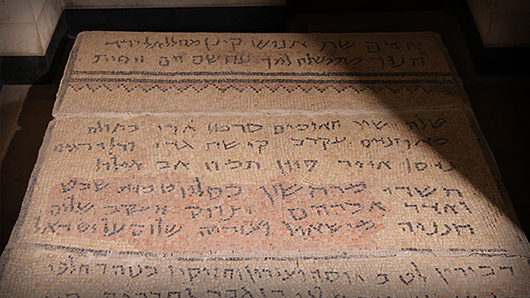 אדם שת אנוש קינן מהללאל ירד
חנוך מתושלח למך נוח שם חם ויפת
טלה שור תאומים סרטן ארי בתולה
מאוזניים עקרב קשת גדי ודלי דגים
ניסן אייר סיון תמוז אב אילול
תשרי מרחשון כסליו טבית שבט
ואדר אברהם יצחק יעקב שלום
חנניה מישאיל ועזריה שלום על ישראל
דכירין לטב יוסה ועירון וחזיקיו בנוה דחלפי